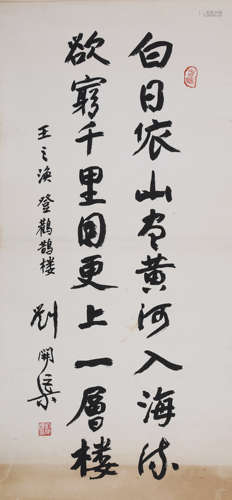 白日依山尽黄河入海流
欲窮千里目更上一層楼
王之涣 登鸛鵲楼 劉開渠